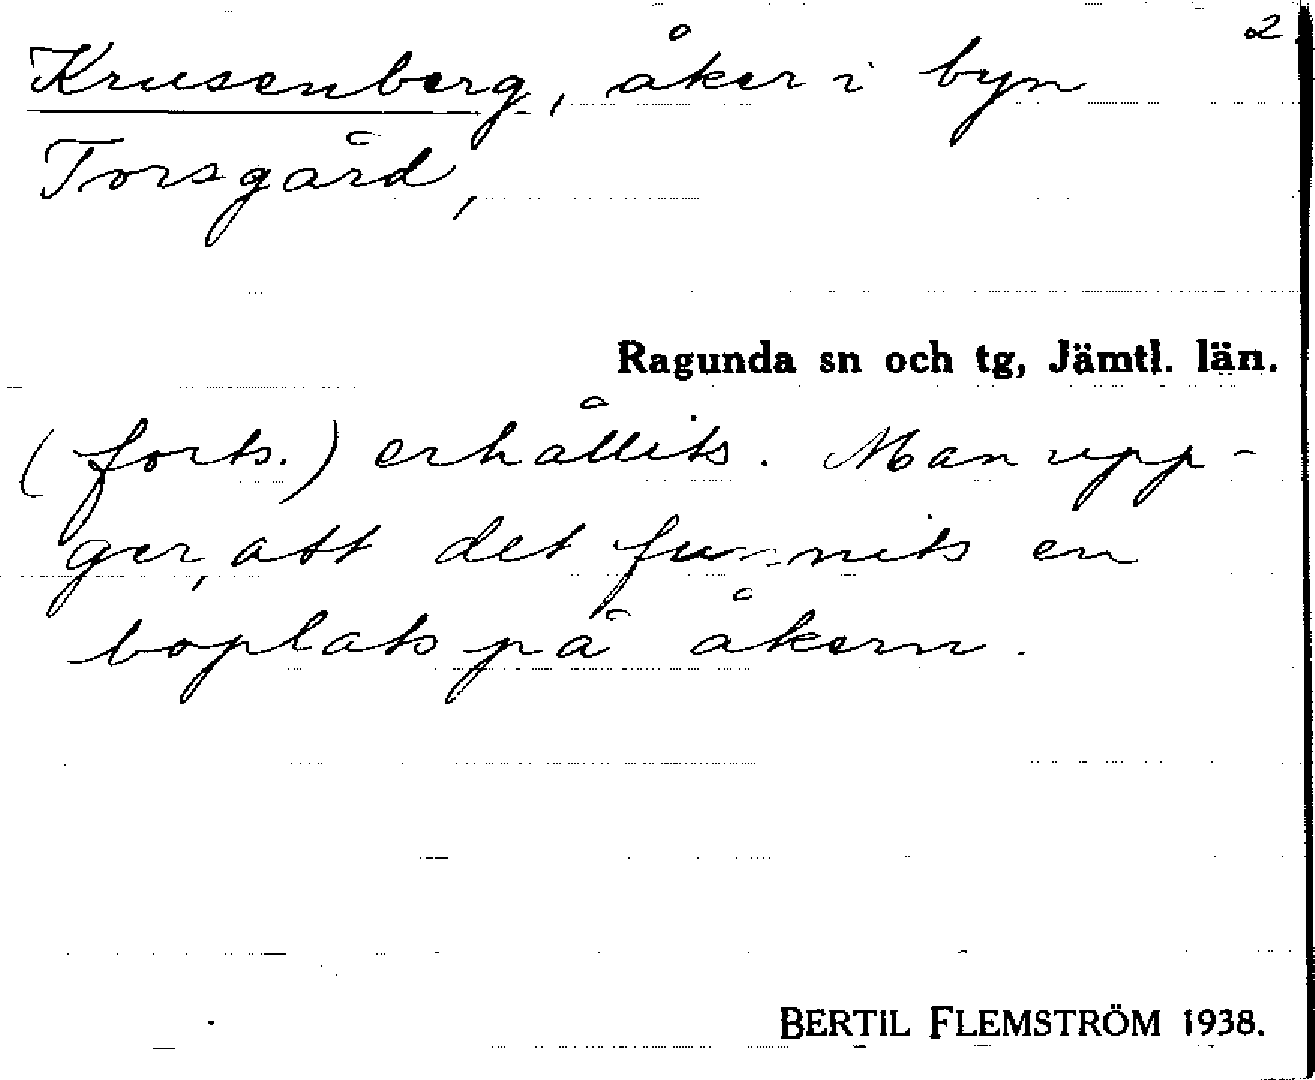 2
Krusenberg, åker i byn
Torsgård,
Ragunda sn och tg, Jämtl. län.
(forts.) erhållits. Man upp-
ger, att det funnits en
boplats på åkern.
BERTIL FLEMSTRÖM 1938.